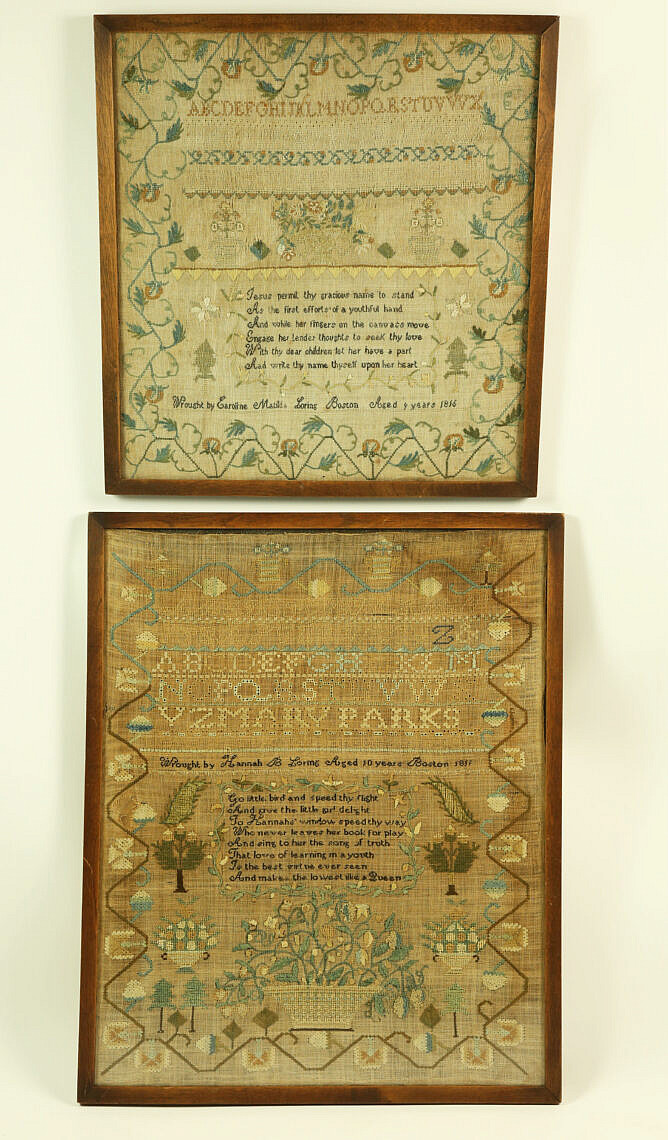 ABCDEFGHIJKLMNOPQRSTUVWX
Jesus permit thy gracious name to stand
As the first efforts of a youthful hand
And while her fingers on the canvass move
Engage her tender thoughts to seek thy love
With thy dear children let her have a part
And write thy name thyself upon her heart
Wrought by Caroline Matilda Loring Boston Aged 9 years 1816
Z &
ABCDEFGH KLM
NOPQRSTUVW
YZ MARY PARKS
Wrought by Hannah B Loring Aged 10 years Boston
Go little bird and speed thy flight
And give the little girl delight
To Hannahs' window speed thy way
Who never leaves her book for play
And sing to her the song of truth
That love of learning in a youth
Is the best virtue ever seen
And makes the lowest like a Queen